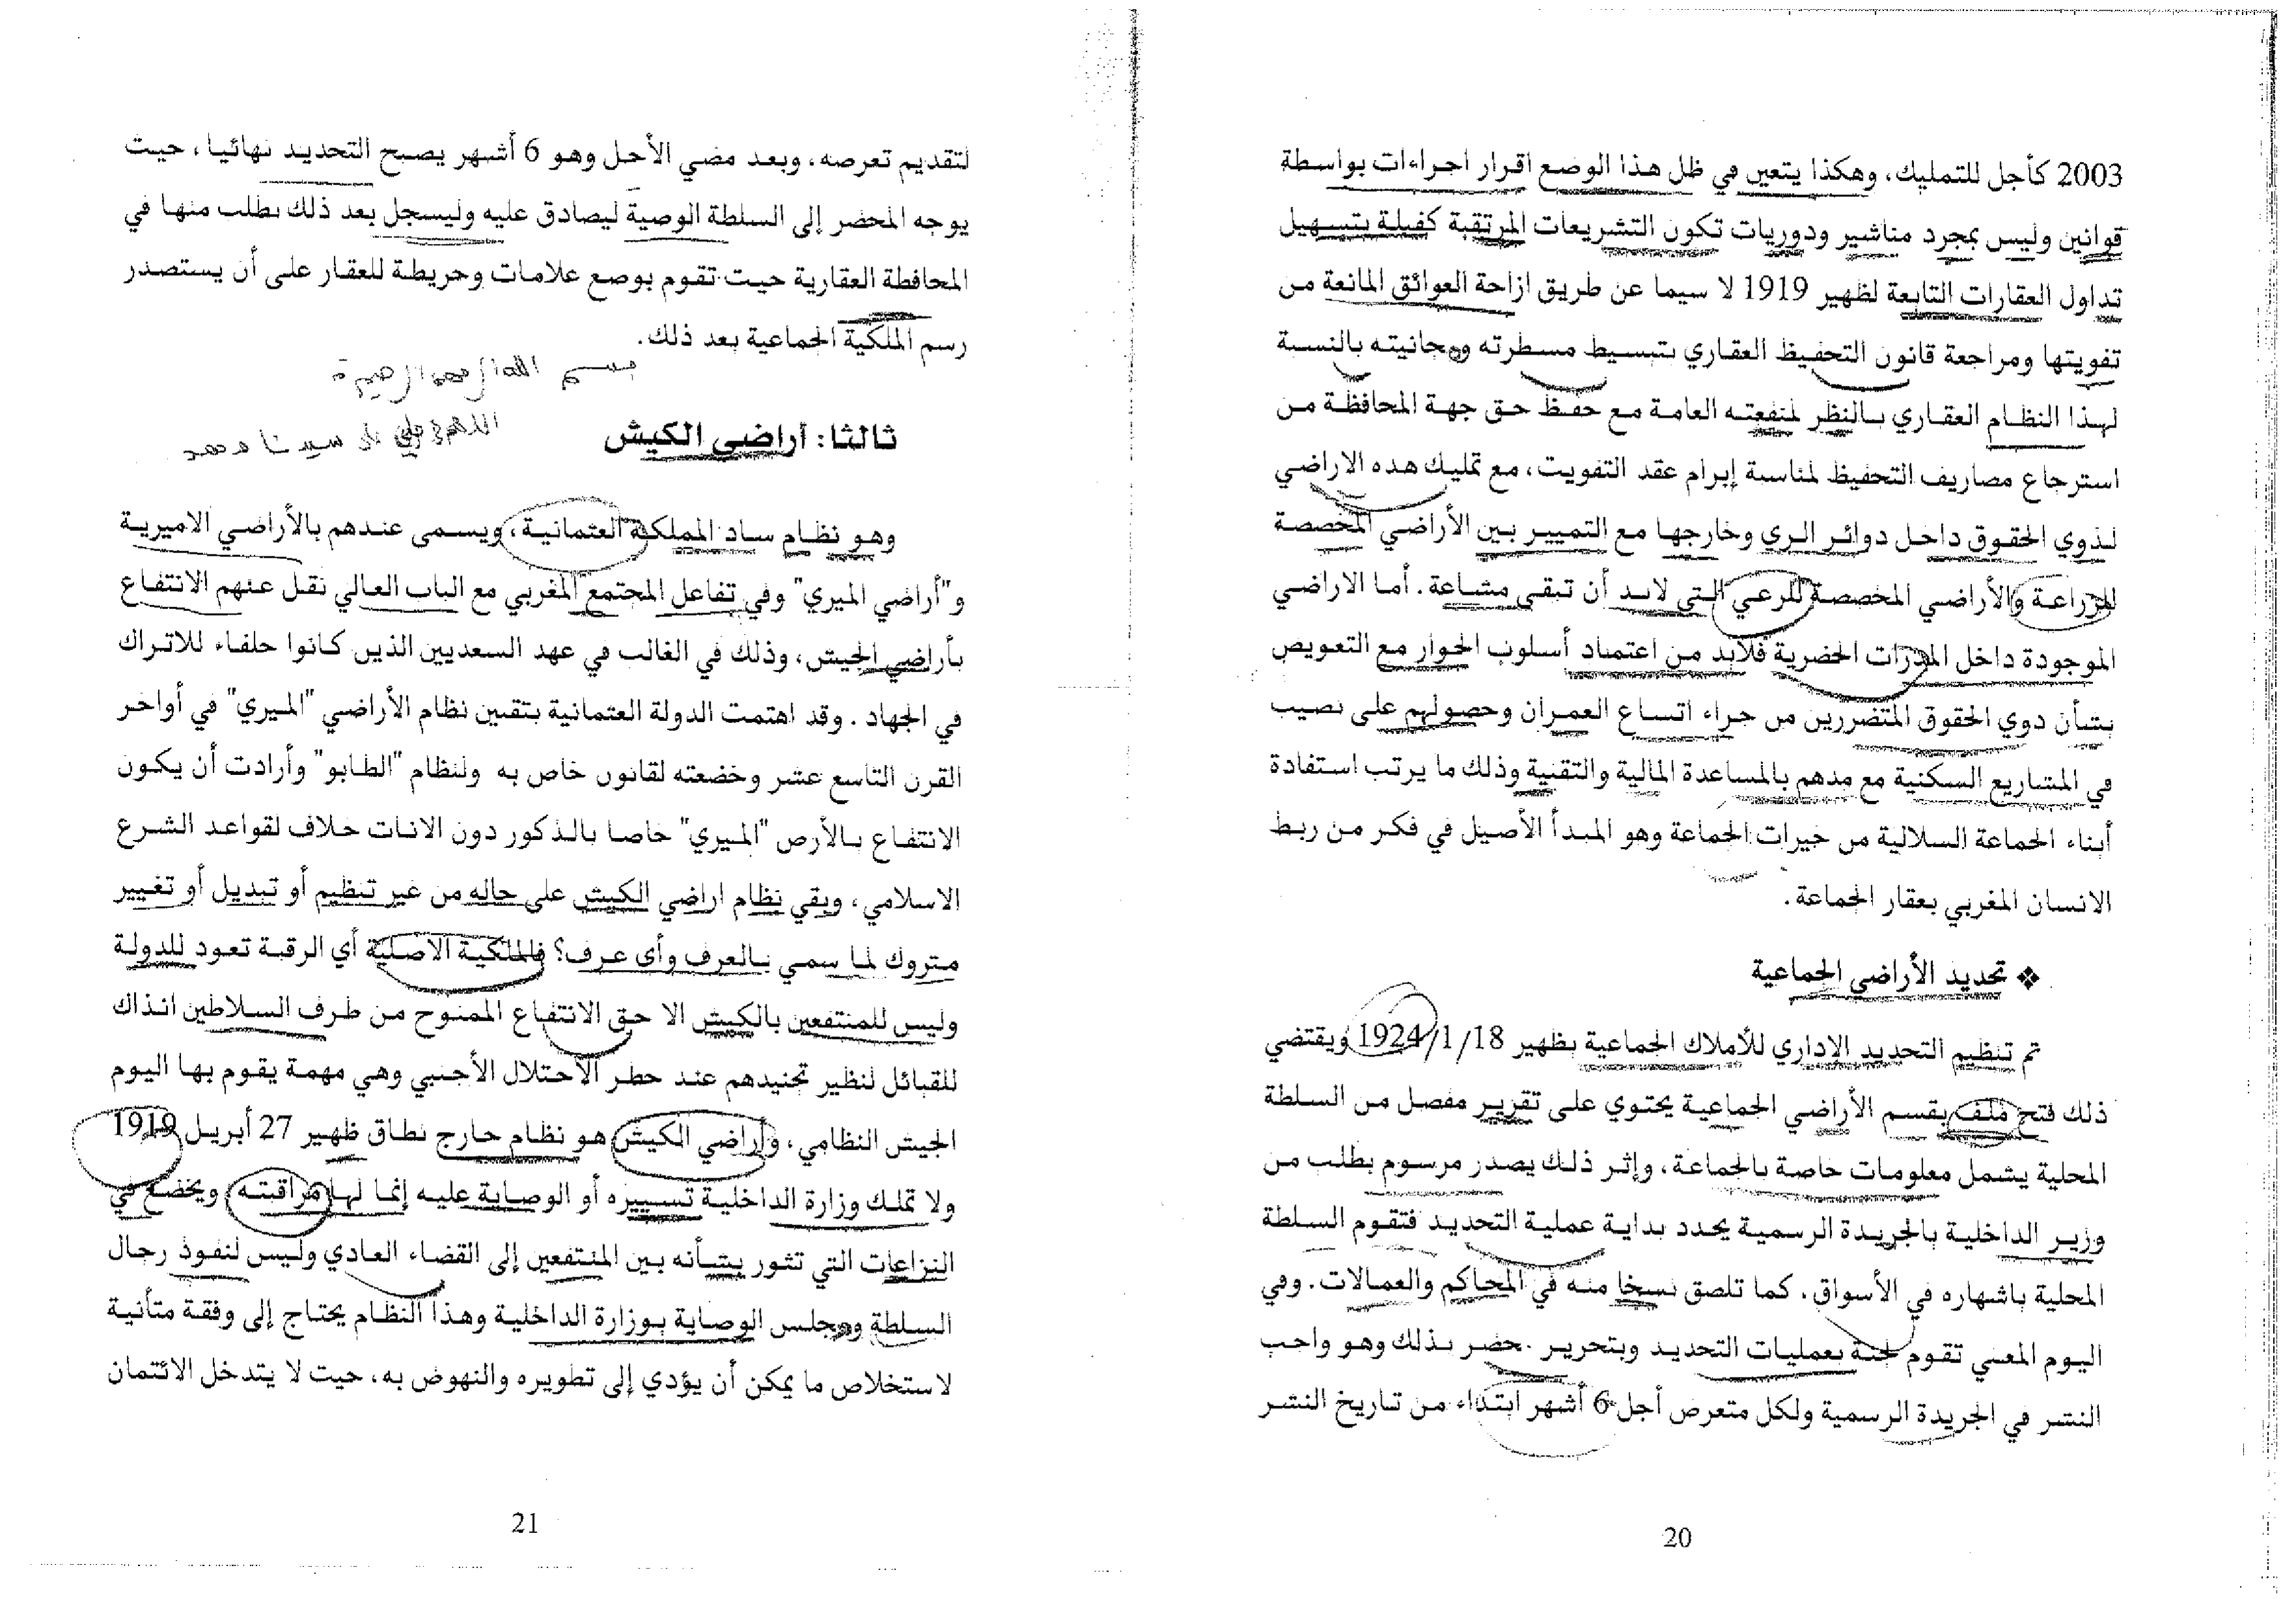 2003 كأجل للتمليك، وهكذا يتعين في ظل هذا الوضع اقرار اجراءات بواسطة
قوانين وليس بمجرد مناشير ودوريات تكون التشريعات المرتقبة كفيلة بتسهيل
تداول العقارات التابعة لظهير 1919 لا سيما عن طريق ازاحة العوائق المانعة من
تفويتها ومراجعة قانون التحفيظ العقاري بتبسيط مسطرته ومجانيته بالنسبة
لهذا النظام العقاري بالنظر لمنفعته العامة مع حفظ حق جهة المحافظة من
استرجاع مصاريف التحفيظ لمناسبة إبرام عقد التفويت، مع تمليك هده الاراضي
لذوي الحقوق داخل دوائر الري وخارجها مع التمييز بين الأراضي المخصصة
للزراعة والأراضي المخصصة للرعي التي لابد أن تبقى مشاعة. أما الاراضي
الموجودة داخل المدارات الحضرية فلابد من اعتماد أسلوب الحوار مع التعويض
بشأن دوي الحقوق المتضررين من جراء اتساع العمران وحصولهم على نصيب
في المشاريع السكنية مع مدهم بالمساعدة المالية والتقنية وذلك ما يرتب استفادة
أبناء الجماعة السلالية من خيرات الجماعة وهو المبدأ الأصيل في فكر من ربط
الانسان المغربي بعقار الجماعة.
❖ تحديد الأراضي الجماعية
تم تنظيم التحديد الاداري للأملاك الجماعية بظهير 18/1/1924 ويقتضي
ذلك فتح ملف بقسم الأراضي الجماعية يحتوي على تقرير مفصل من السلطة
المحلية يشمل معلومات خاصة بالجماعة، وإثر ذلك يصدر مرسوم بطلب من
وزير الداخلية بالجريدة الرسمية يحدد بداية عملية التحديد فتقوم السلطة
المحلية باشهاره في الأسواق، كما تلصق نسخا منه في المحاكم والعمالات. وفي
اليوم المعني تقوم لجنة بعمليات التحديد وبتحرير حضر بذلك وهو واجب
النشر في الجريدة الرسمية ولكل متعرض أجل 6 أشهر ابتداء من تاريخ النشر
20
لتقديم تعرضه، وبعد مضي الأجل وهو 6 أشهر يصبح التحديد نهائيا، حيث
يوجه المحضر إلى السلطة الوصية ليصادق عليه وليسجل بعد ذلك بطلب منها في
المحافظة العقارية حيث تقوم بوضع علامات وخريطة للعقار على أن يستصدر
رسم الملكية الجماعية بعد ذلك.
بسم الله الرحمن الرحيم
ثالثا: أراضي الكيش
اللهم صلي على سيدنا محمد
وهو نظام ساد المملكة العثمانية، ويسمى عندهم بالأراضي الاميرية
و"أراضي الميري" وفي تفاعل المجتمع المغربي مع الباب العالي نقل عنهم الانتفاع
بأراضي الجيش، وذلك في الغالب في عهد السعديين الذين كانوا حلفاء للاتراك
في الجهاد. وقد اهتمت الدولة العثمانية بتقنين نظام الأراضي "الميري" في أواخر
القرن التاسع عشر وخضعته لقانون خاص به ولنظام "الطابو" وأرادت أن يكون
الانتفاع بالأرض "الميري" خاصا بالذكور دون الاناث خلاف لقواعد الشرع
الاسلامي، وبقي نظام اراضي الكيش على حاله من غير تنظيم أو تبديل أو تغيير
متروك لما سمي بالعرف وأى عرف؟ فالملكية الاصلية أي الرقبة تعود للدولة
وليس للمنتفعين بالكيش الا حق الانتفاع الممنوح من طرف السلاطين انذاك
للقبائل لنظير تجنيدهم عند خطر الاحتلال الأجنبي وهي مهمة يقوم بها اليوم
الجيش النظامي، وأراضي الكيش هو نظام خارج نطاق ظهير 27 أبريل 1919
ولا تملك وزارة الداخلية تسييره أو الوصاية عليه إنما لها مراقبته، ويخضع في
النزاعات التي تثور بشأنه بين المنتفعين إلى القضاء العادي وليس لنفوذ رجال
السلطة ومجلس الوصاية بوزارة الداخلية وهذا النظام يحتاج إلى وقفة متأنية
لاستخلاص ما يمكن أن يؤدي إلى تطويره والنهوض به، حيث لا يتدخل الائتمان
21